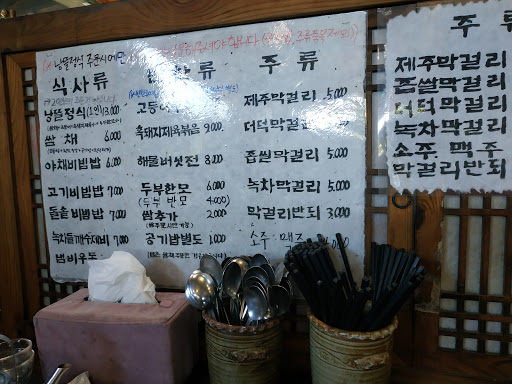 식사류
낭뿔정식(1인)13,000
쌈 채 6,000
야채비빔밥 6,000
고기비빔밥 7,000
돌솥비빔밥 7,000
녹차들깨수제비 7,000
냄비우동
류
흑돼지제육볶음 9,000
해물버섯전 8,000
두부한모 6,000
(두부 반모 4,000)
쌈추가 2,000
공기밥별도 1,000
주 류
제주막걸리 5,000
더덕막걸리 5,000
좁쌀막걸리 5,000
녹차막걸리 5,000
막걸리반되 3,000
소주 맥주
주 류
제주막걸리
좁쌀막걸리
더덕막걸리
녹차막걸리
소주 맥주
막걸리반되